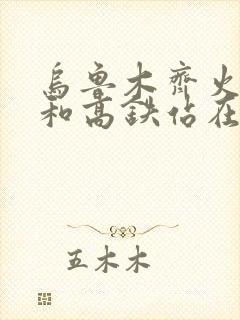 乌鲁木齐火
和高铁站在
五木木